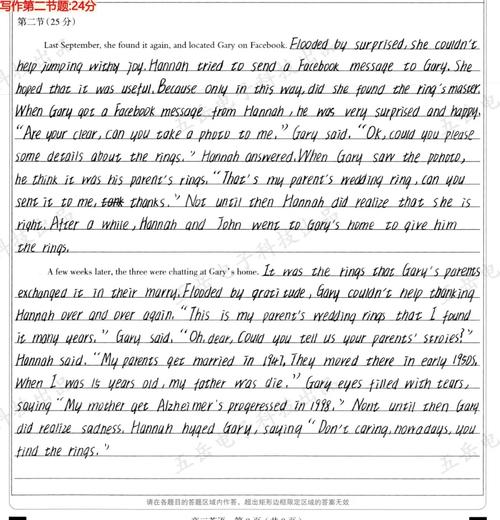 写作第二节题:24分
第二节(25分)
Last September, she found it again, and located Gary on Facebook. Flooded by surprised, she couldn't
help jumping withy joy. Hannah tried to send a Facebook message to Gary. She
hoped that it was useful. Because only in this way, did she found the ring's master.
When Gary got a Facebook message from Hannah, he was very surprised and happy.
"Are your clear, can you take a photo to me." Gary said. "Ok, could you please
some details about the rings." Hannah answered. When Gary saw the pohoto,
he think it was his parent's rings. "That's my parent's wedding ring, can you
sent it to me, thanks." Not until then Hannah did realize that she is
right. After a while, Hannah and John went to Gary's home to give him
the rings.
A few weeks later, the three were chatting at Gary's home. It was the rings that Gary's parents
exchanged it in their marry. Flooded by gratitude, Gary couldn't help thanking
Hannah over and over again. "This is my parent's wedding rings that I found
it many years." Gary said. "Oh, dear, Could you tell us your parents' stroies?"
Hannah said. "My parents get married in 1947, They moved there in early 1950s.
When I was 15 years old, my father was die." Gary eyes filled with tears,
saying "My mother get Alzheimer's progeressed in 1998." Nont until then Gary
did realize sadness. Hannah hyged Gary, saying "Don't caring, nowadays, you
find the rings."
请在各题目的答题区域内作答,超出矩形边框限定区域的答案无效